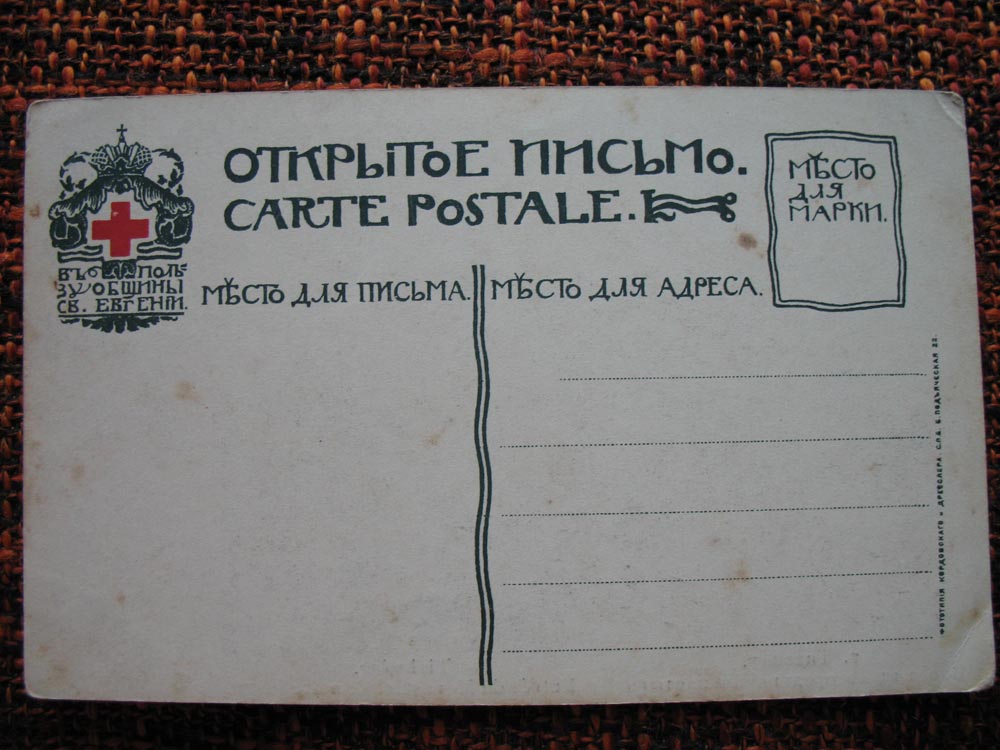 ОТКРЫТОЕ ПИСЬМО.
CARTE POSTALE.
МѢСТО
ДЛЯ
МАРКИ.
ВЪ ПОЛЬ-
ЗУ ОБЩИНЫ
СВ. ЕВГЕНІИ.
МѢСТО ДЛЯ ПИСЬМА.
МѢСТО ДЛЯ АДРЕСА.
ФОТОТИПІЯ КОРДОВСКАГО и ДРЕССЛЕРА С.П.Б. Б. ПОДЬЯЧЕСКАЯ 22.